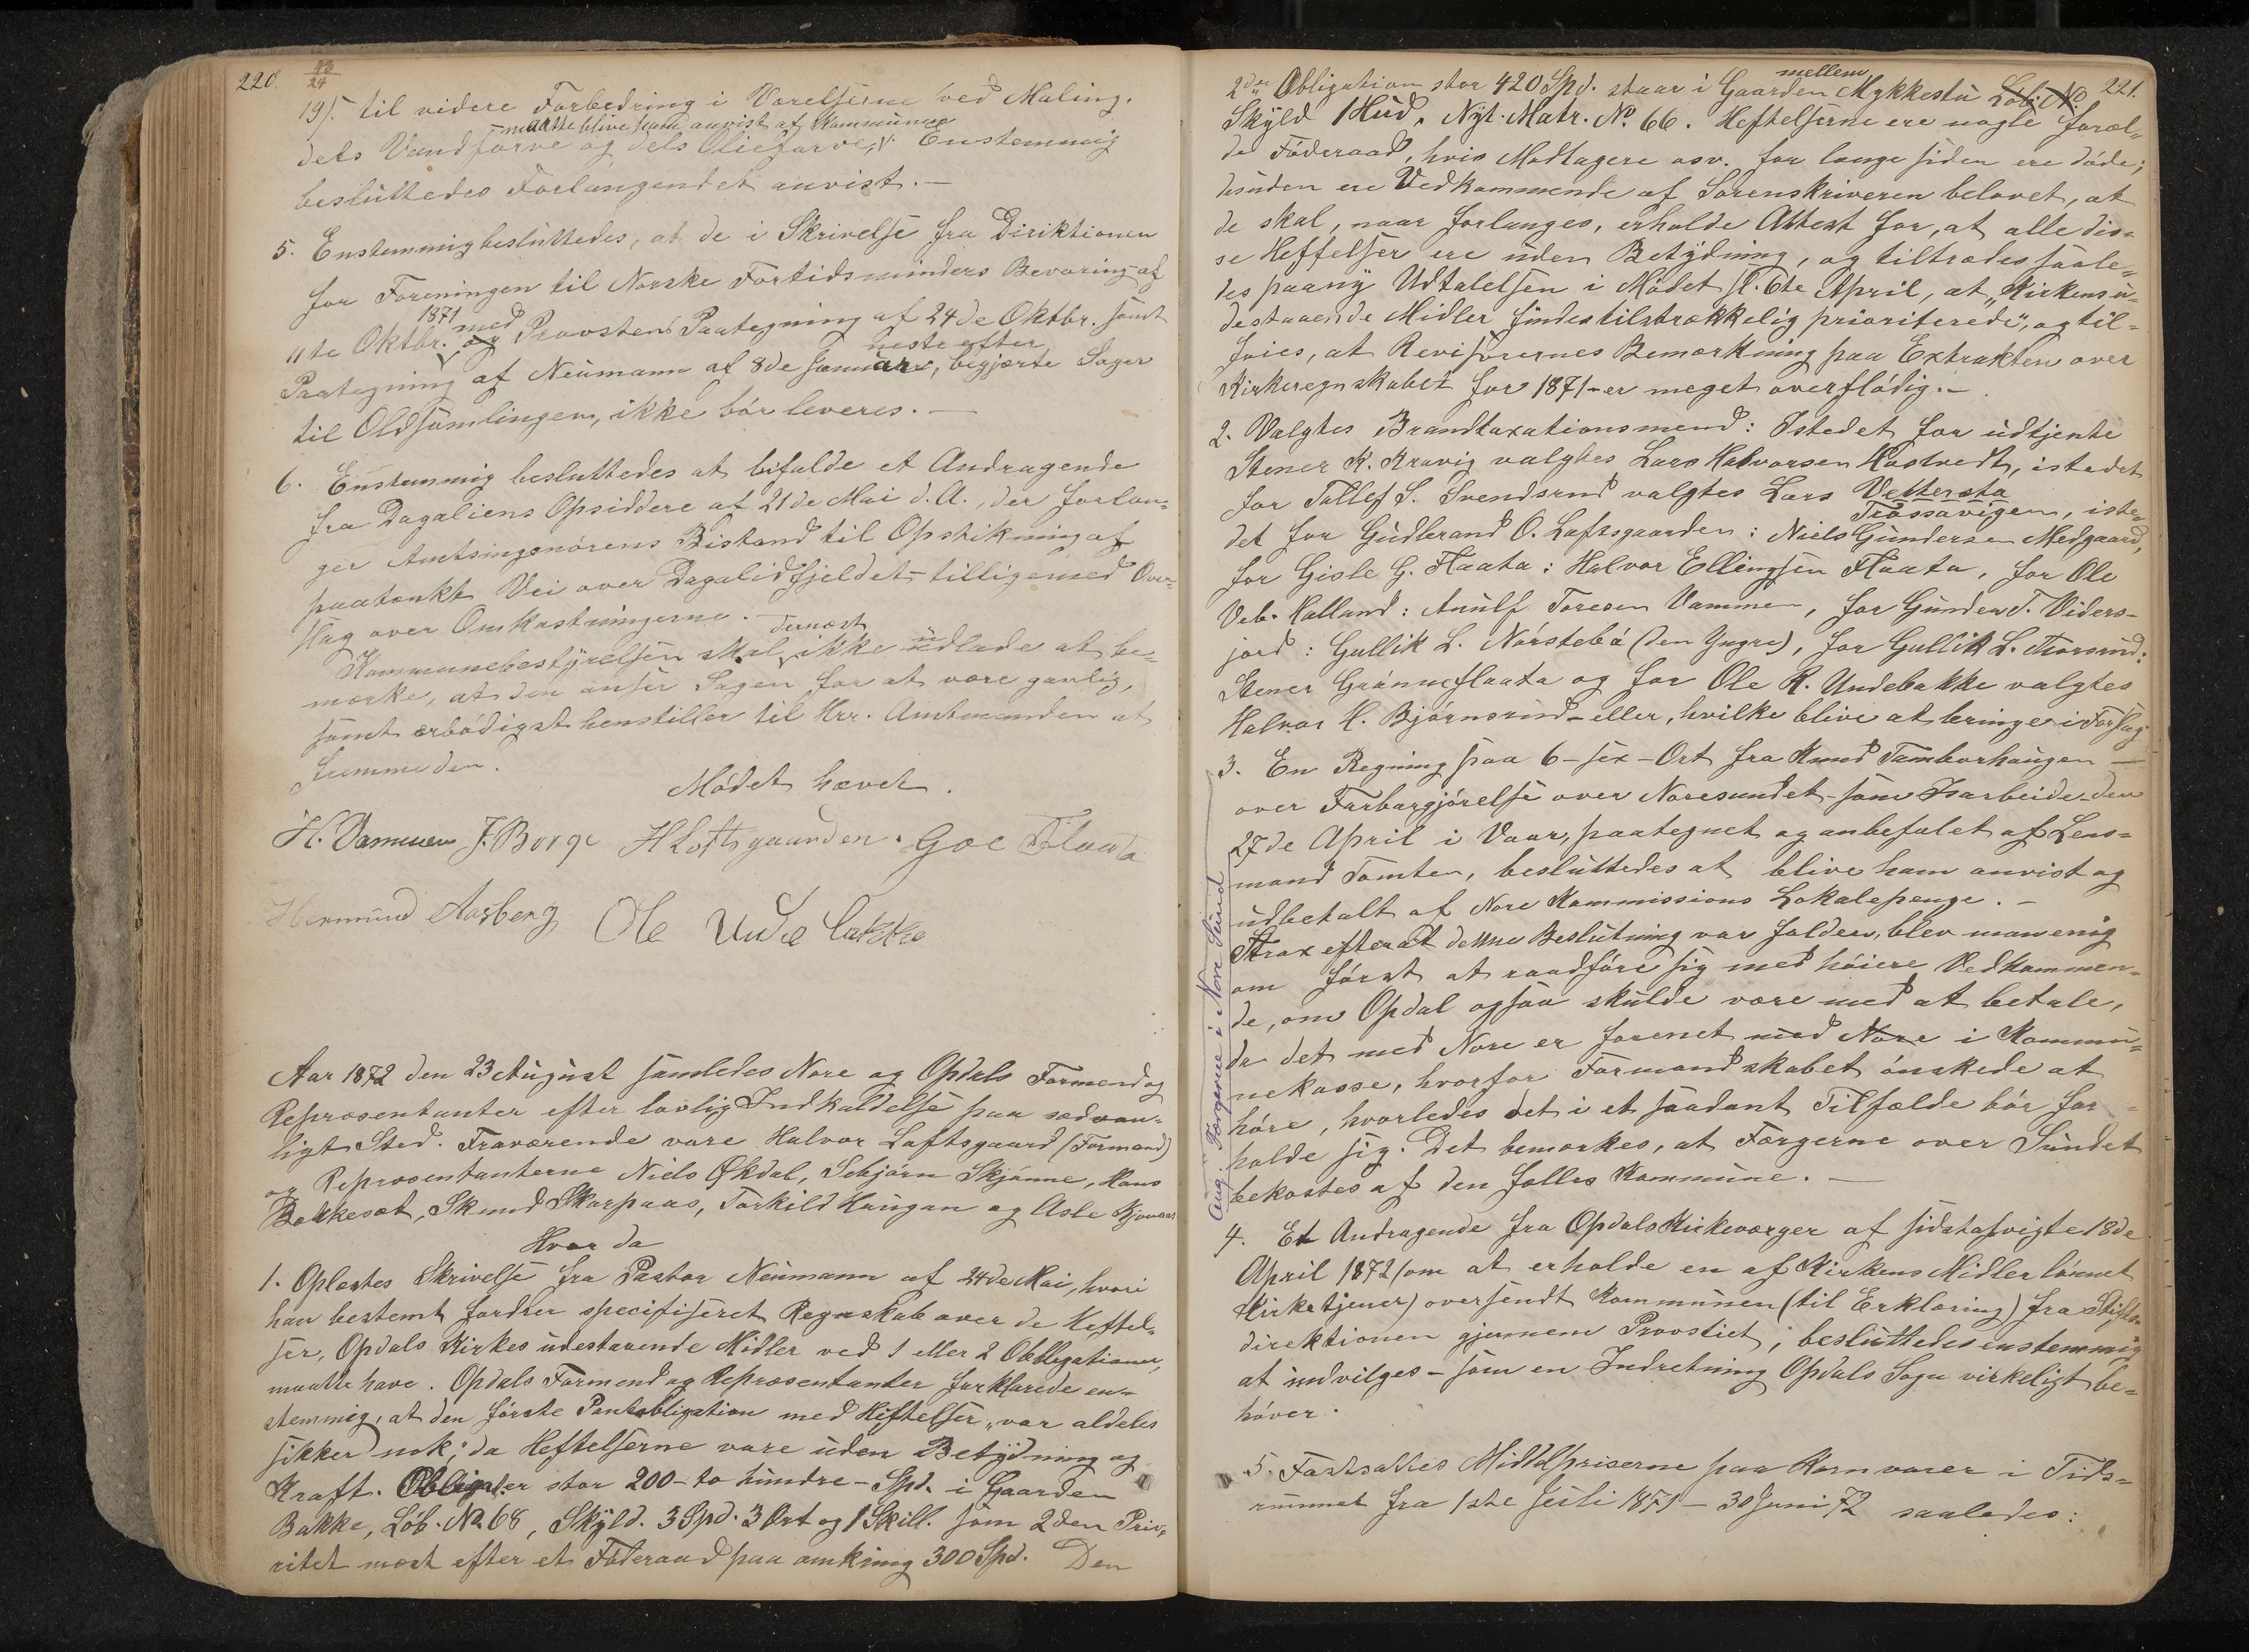 220.
43
24
19/. til videre Forbedring i Værelserne ved Maling,
maatte blive ham anvist af Kommunen
dels Vandfarve og dels Oliefarve, Enstemmig
besluttedes Forlangendet anvist.—
5. Enstemmig besluttedes, at de i Skrivelse fra Direktionen
for Foreningen til Norske Fortidsminders Bevaring af
1871 med
11te Oktbr. og Provstens Paategning af 24de Oktbr. samt
neste efter
Paategning af Neumann af 8de Januar, begjærte Sager
til Oldsamlingen, ikke bör leveres.—
6. Enstemmig besluttedes at bifalde et Andragende
fra Dagaliens Opsiddere af 21de Mai d. A., der forlan-
ger Amtsingenörens Bistand til Opstikning af
paatænkt Vei over Dagalidfjeldet tilligemed Over-
slag over Omkostningerne.—
dernæst
Kommunebestyrelsen skal ikke udlade at be-
mærke, at den anser Sagen for at være gavnlig,
samt ærbödigst henstiller til Hrr. Amtmanden at
fremme den.
Mödet hævet.
H. Vammen J. Borge H Loftsgaarden. Goe Flaata
Hermund Aasberg Ole Undebakke
Aar 1872 den 23 August samledes Nore og Opdals Formend og
Repræsentanter efter lovlig Indkaldelse paa sædvan-
ligt Sted. Fraværende vare Halvor Loftsgaard (Formand)
og Repræsentanterne Niels Økdal, Sebjörn Skjönne, Hans
Bakkesæt, Knud Skarpaas, Torkild Haugan og Asle
Hvor da
1. Oplæstes Skrivelse fra Pastor Neumann af 24de Mai, hvori
han bestemt fordrer specifiseret Regnskab over de Heftel-
ser, Opdals Kirkes udestaaende Midler ved 1 eller 2 Obligationer,
maatte have. Opdals Formend og Repræsentanter forklarede en-
stemmig, at den förste Pantobligation med Heftelser „var aldeles
sikker nok", da Heftelserne vare uden Betydning og
Kraft. Obligat. er stor 200 - to hundre - Spd. i Gaarden
Bakke, Löb. No. 68, Skyld. 3 Spd. 3 Ort og 1 Skill. som 2den Prio-
ritet næst efter et Föderaad paa omkring 300 Spd. Den
221.
mellem
2den Obligation stor 420 Spd. staar i Gaarden Mykkestu Löb. No.
Skyld 1 Hud. Nyt. Matr. No. 66. Heftelserne ere nogle foræl-
de Föderaad, hvis Modtagere osv. for længe siden ere döde;
desuden ere Vedkommende af Sorenskriveren belovet, at
de skal, naar forlanges, erholde Attest for, at alle dis-
se Heftelser ere uden Betydning, og tiltrædes saale-
des paany Udtalelsen i Mödet sl. 6te April, at „Kirkens u-
destaaende Midler findes tilstrækkelig prioriterede", og til-
föies, at Revisorernes Bemærkning paa Extrakten over
Kirkeregnskabet for 1871 - er meget overflödig.—
2. Valgtes Brandtaxationsmend: Istedet for udtjente
Stener K. Kravig valgtes Lars Halvorsen Kostvedt, istedet
for Tollef S. Svendsrud valgtes Lars Vettersta
Trossavigen, iste-
det for Gudbrand O. Loftsgaarden: Niels Gundersen Medgaard,
for Gisle G. Flaata: Halvor Ellingsen Flaata, for Ole
Veb. Kalland: Anulf Toresen Vammen, for Gunder T. Viders-
jord: Gullik L. Nörstebö (den Yngre), for Gullik L. Torsrud:
Stener Grönneflaata og for Ole K. Undebakke valgtes
Halvor H. Björnsrud - eller, hvilke blive at bringe i Forslag
3. En Regning paa 6 - sex - Ort fra Knud Tamborhaugen —
over Farbargjörelse over Noresundet som Isarbeide den
27de April i Vaar, paategnet og anbefalet af Lens-
mand Tomter, besluttedes at blive ham anvist og
udbetalt af Nore Kommissions Lokalepenge.—
Strax efterat denne Beslutning var falden, blev man enig
om först at raadföre sig med höiere Vedkommen-
de, om Opdal ogsaa skulde være med at betale,
da det med Nore er forenet med Nore i Kommu-
nekasse, hvorfor Formandskabet önskede at
höre, hvorledes det i et saadant Tilfælde bör for-
holde sig. Det bemærkes, at Færgerne over Sundet
bekostes af den fælles Kommune.—
4. Et Andragende fra Opdals Kirkeværger af sidstafvigte 18de
April 1872 (om at erholde en af Kirkens Midler lönnet
Kirketjener) oversendt Kommunen (til Erklæring) fra Stifts-
direktionen gjennem Provstiet, besluttedes enstemmig
at indvilges - som en Indretning Opdals Sogn virkeligt be-
höver.
5. Fastsattes Middelpriserne paa Kornvarer i Tids-
rummet fra 1ste Juli 1871 - 30 Juni 72 saaledes:
Ang. Færgerne i Nore Sund